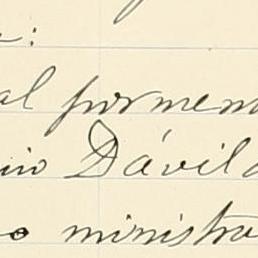 al pormen
nio Dávila
o ministro